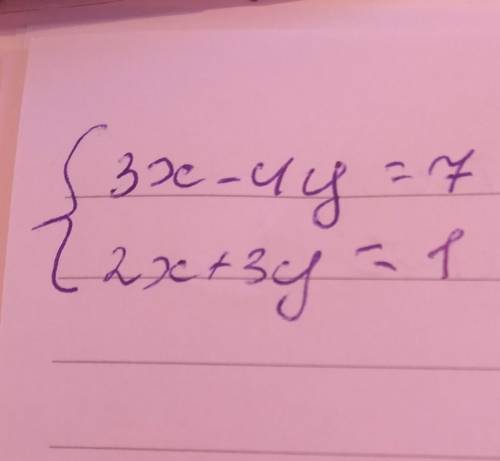 3x - 4y = 7
2x + 3y = 1